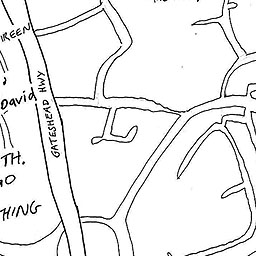 IREEN
David
GATESHEAD HWY
TH.
HING